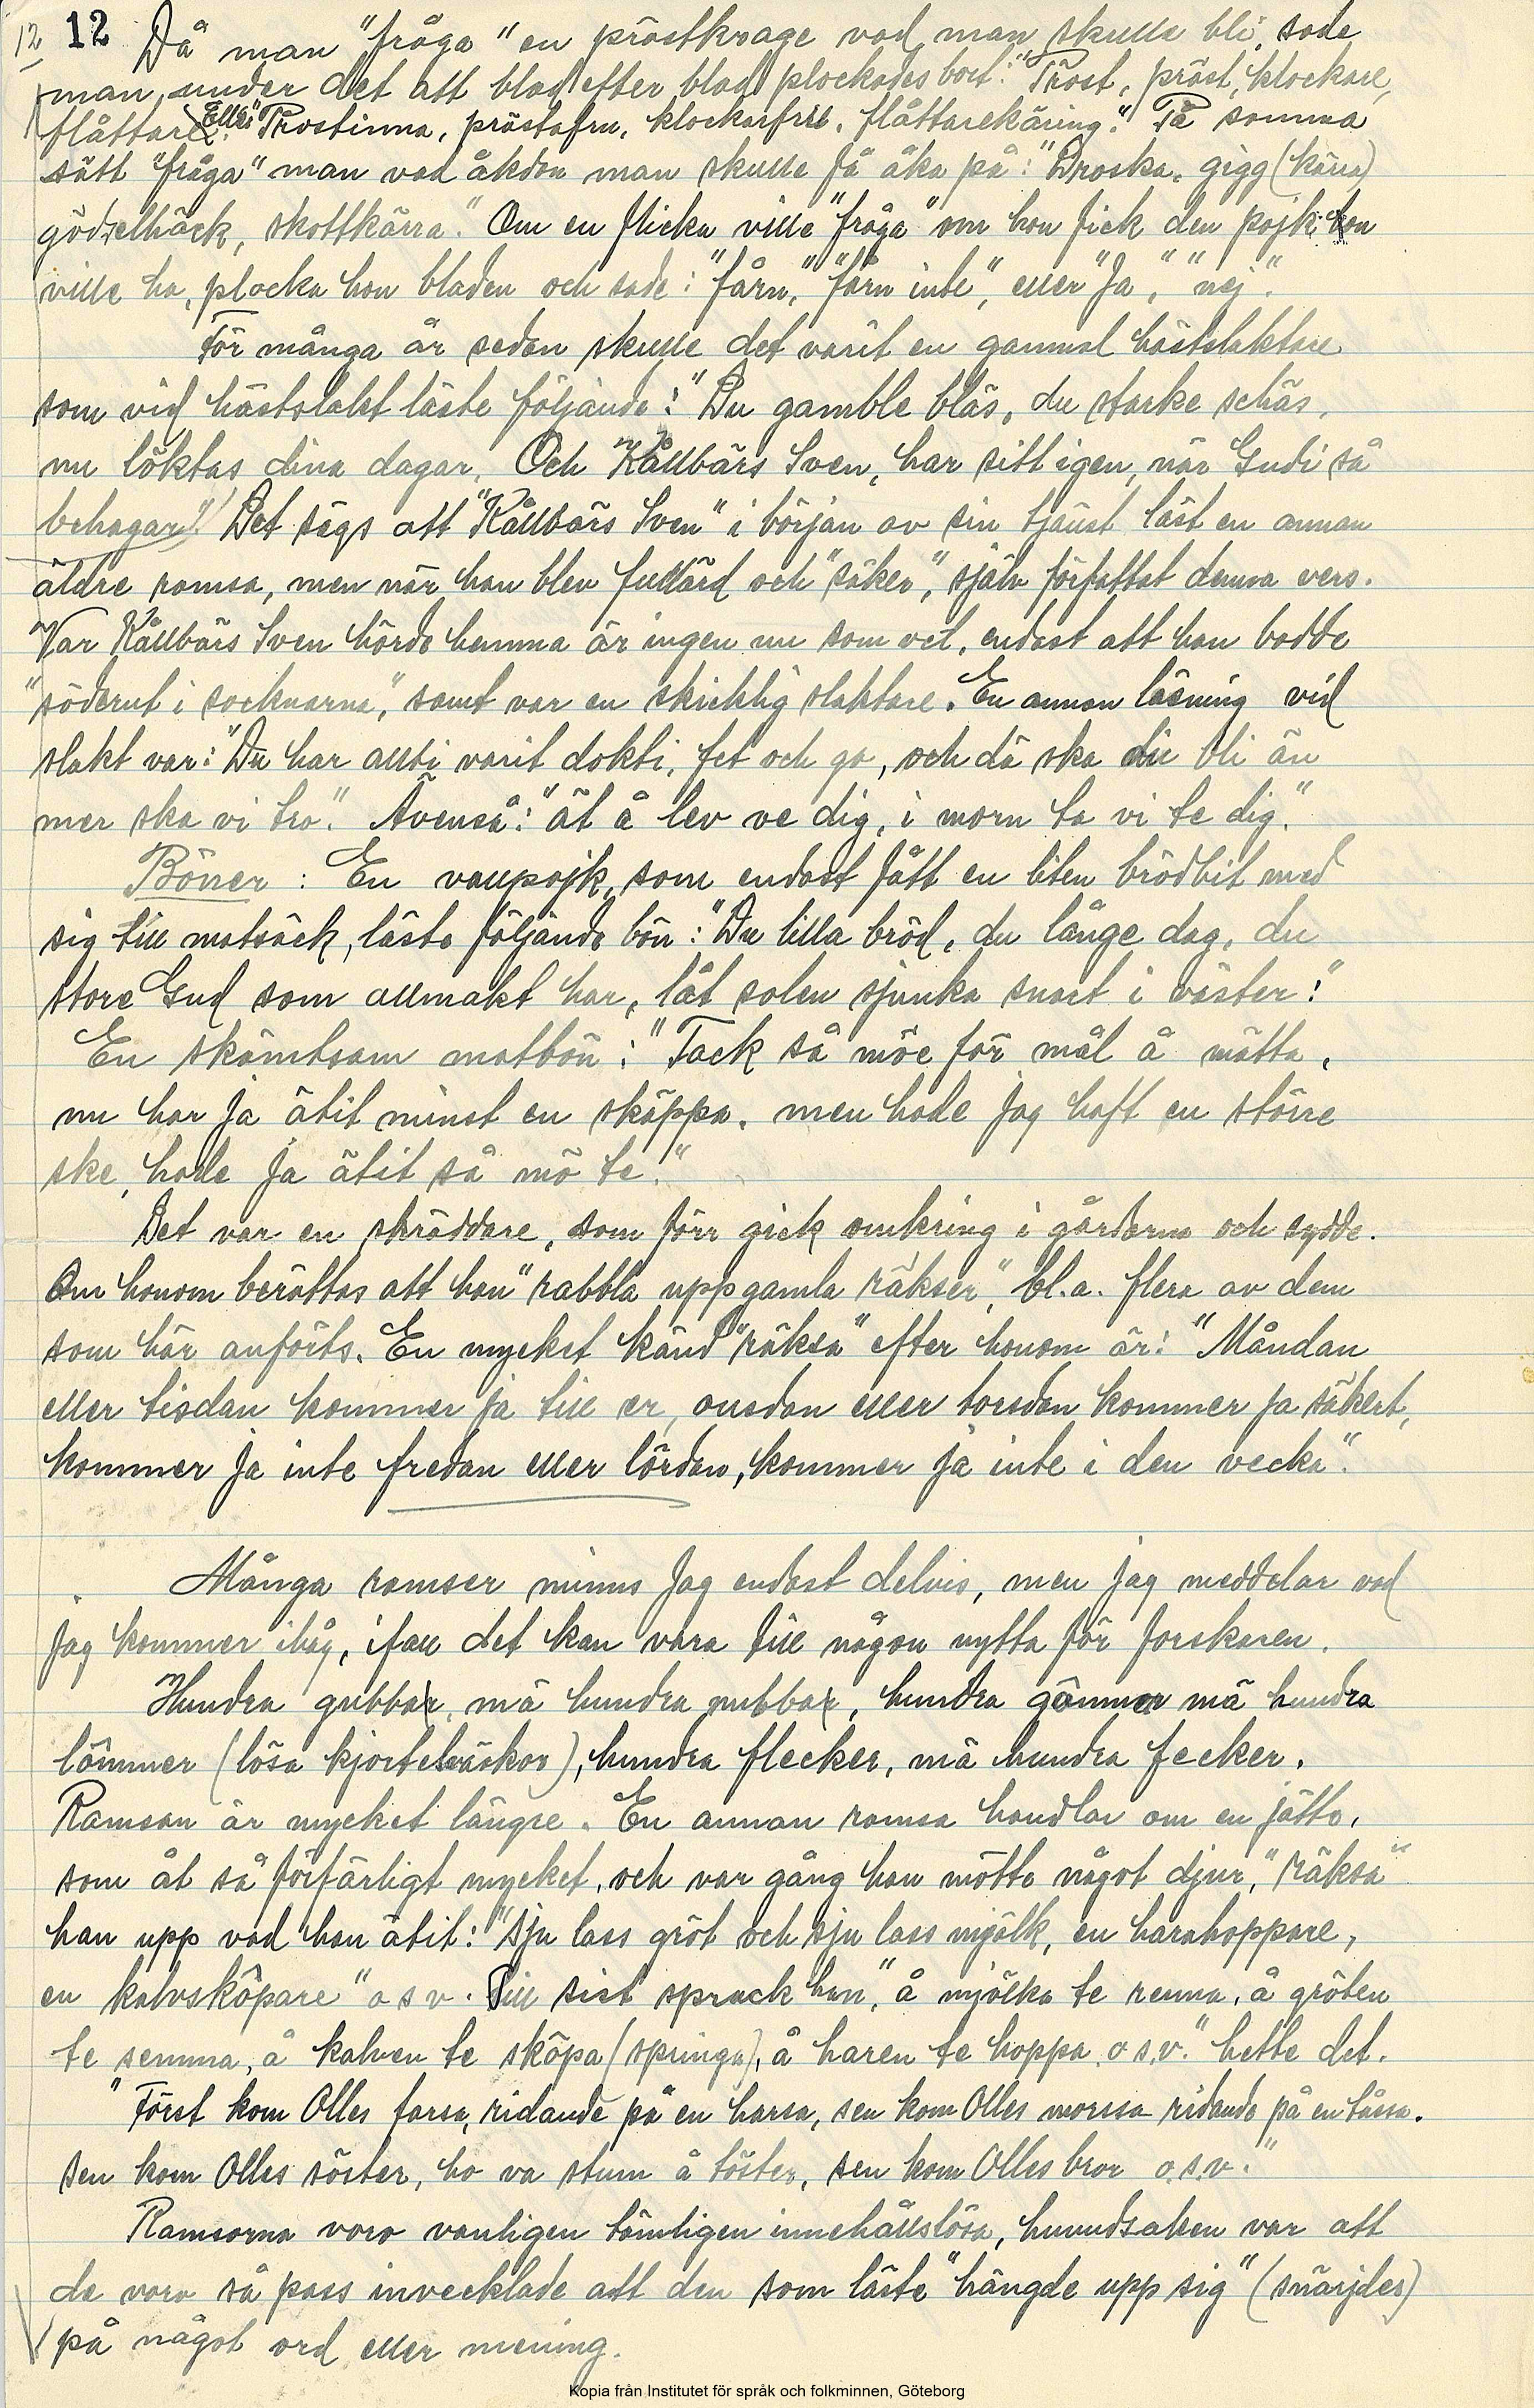 12 12 Då man "fråga" en prästkrage vad man skulle bli, sade
man under det att blad efter blad plockades bort: "Prost, präst, klockare,
flåttare." Eller "Prostinna, prästafru, klockarfru, flåttarekäring." På samma
sätt "fråga" man vad åkdon man skulle få åka på: "Droska, gigg (kärra)
gödselhäck, skottkärra." Om en flicka ville "fråga" om hon fick den pojk hon
ville ha, plocka hon bladen och sade: "fårn," "fårn inte", eller "Ja", "nej".
För många år sedan skulle det varit en gammal hästslaktare
som vid hästslakt läste följande: "Du gamble bläs, du starke schäs,
nu löktas dina dagar, Och Kållbärs Sven, har sitt igen, när Gudi så
behagar". Det sägs att "Kållbärs Sven" i början av sin tjänst läst en annan
äldre ramsa, men när han blev fullärd och "säker", själv författat denna vers.
Var Kållbärs Sven hörde hemma är ingen nu som vet, endast att han bodde
"söderut i socknarna", samt var en skicklig slaktare. En annan läsning vid
slakt var: "Du har allti varit dokti, fet och go, och då ska du bli än
mer ska vi tro". Ävenså: "ät å lev ve dig, i morn ta vi te dig."
Böner: En vallpojk, som endast fått en liten brödbit med
sig till matsäck, läste följande bön: "Du lilla bröd, du långe dag, du
store Gud som allmakt har, låt solen sjunka snart i väster!"
En skämtsam matbön: "Tack så möe för mål å mätta,
nu har ja ätit minst en skäppa, men hade jag haft en större
ske, hade ja ätit så mö te."
Det var en skräddare, som förr gick omkring i gårdarna och sydde.
Om honom berättas att han "rabbla upp gamla räkser", bl.a. flera av dem
som här anförts. En mycket känd "räksa" efter honom är: "Måndan
eller tisdan kommer ja till er, onsdan eller torsdan kommer ja säkert,
kommer ja inte fredan eller lördan, kommer ja inte i den vecka".
Många ramser minns jag endast delvis, men jag meddelar vad
jag kommer ihåg, ifall det kan vara till någon nytta för forskaren.
Hundra gubbar, mä hundra nubbar, hundra gämmer mä hundra
lömmer (lösa kjortelväskor), hundra flecker, mä hundra fecker.
Ramsan är mycket längre. En annan ramsa handlar om en jätte,
som åt så förfärligt mycket, och var gång han mötte något djur, "räksa"
han upp vad han ätit: "sju lass gröt och sju lass mjölk, en harahoppare,
en kalvsköpare" o s v. Till sist sprack han, "å mjölka te renna, å gröten
te semma, å kalven te sköpa (springa), å haren te hoppa o s.v." hette det.
"Först kom Olles farsa, ridande på en harsa, sen kom Olles morsa ridande på en tåssa.
sen kom Olles söster, ho va stum å töster, sen kom Olles bror o.s.v."
Ramsorna voro vanligen tämligen innehållslösa, huvudsaken var att
de voro så pass invecklade att den som läste "hängde upp sig" (snärjdes)
på något ord eller mening.
Kopia från Institutet för språk och folkminnen, Göteborg